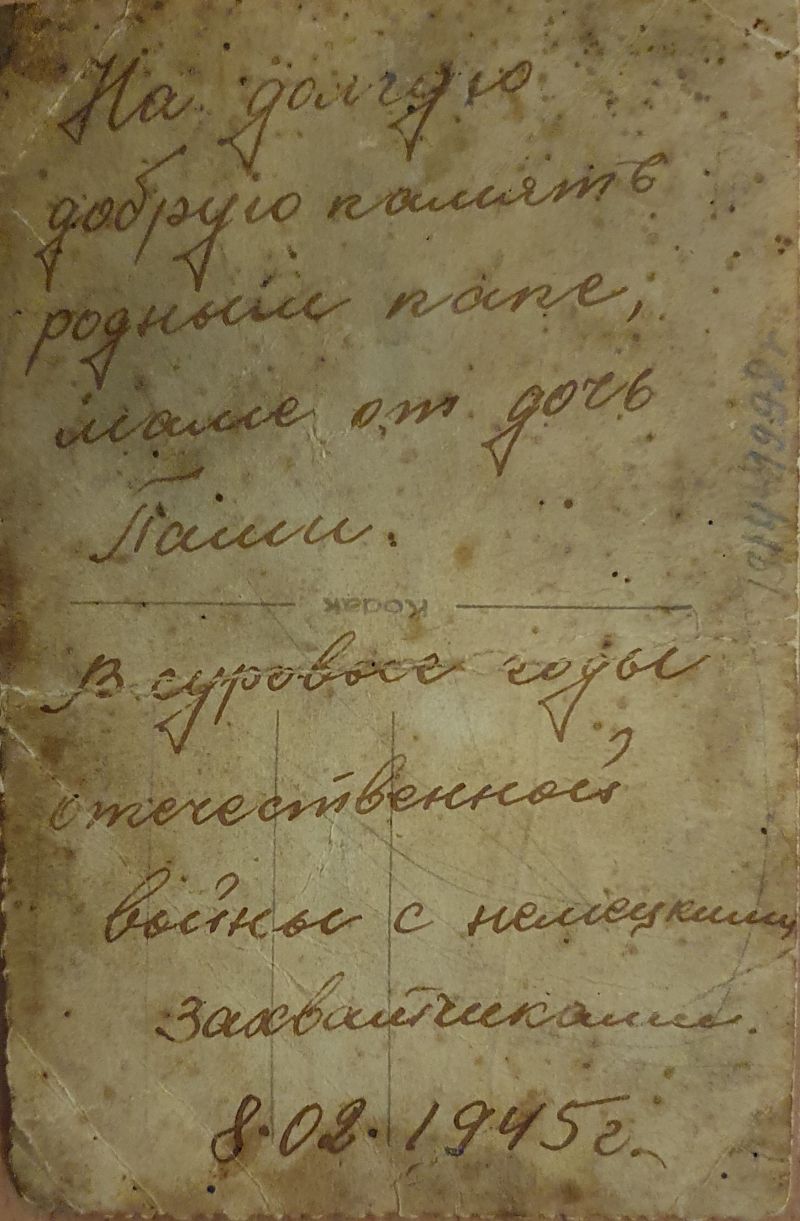 На долгую
добрую память
родным папе,
маме от дочь
Паши.
Kodak
В суровые годы
отечественной
войны с немецкими
захватчиками.
8.02.1945г.